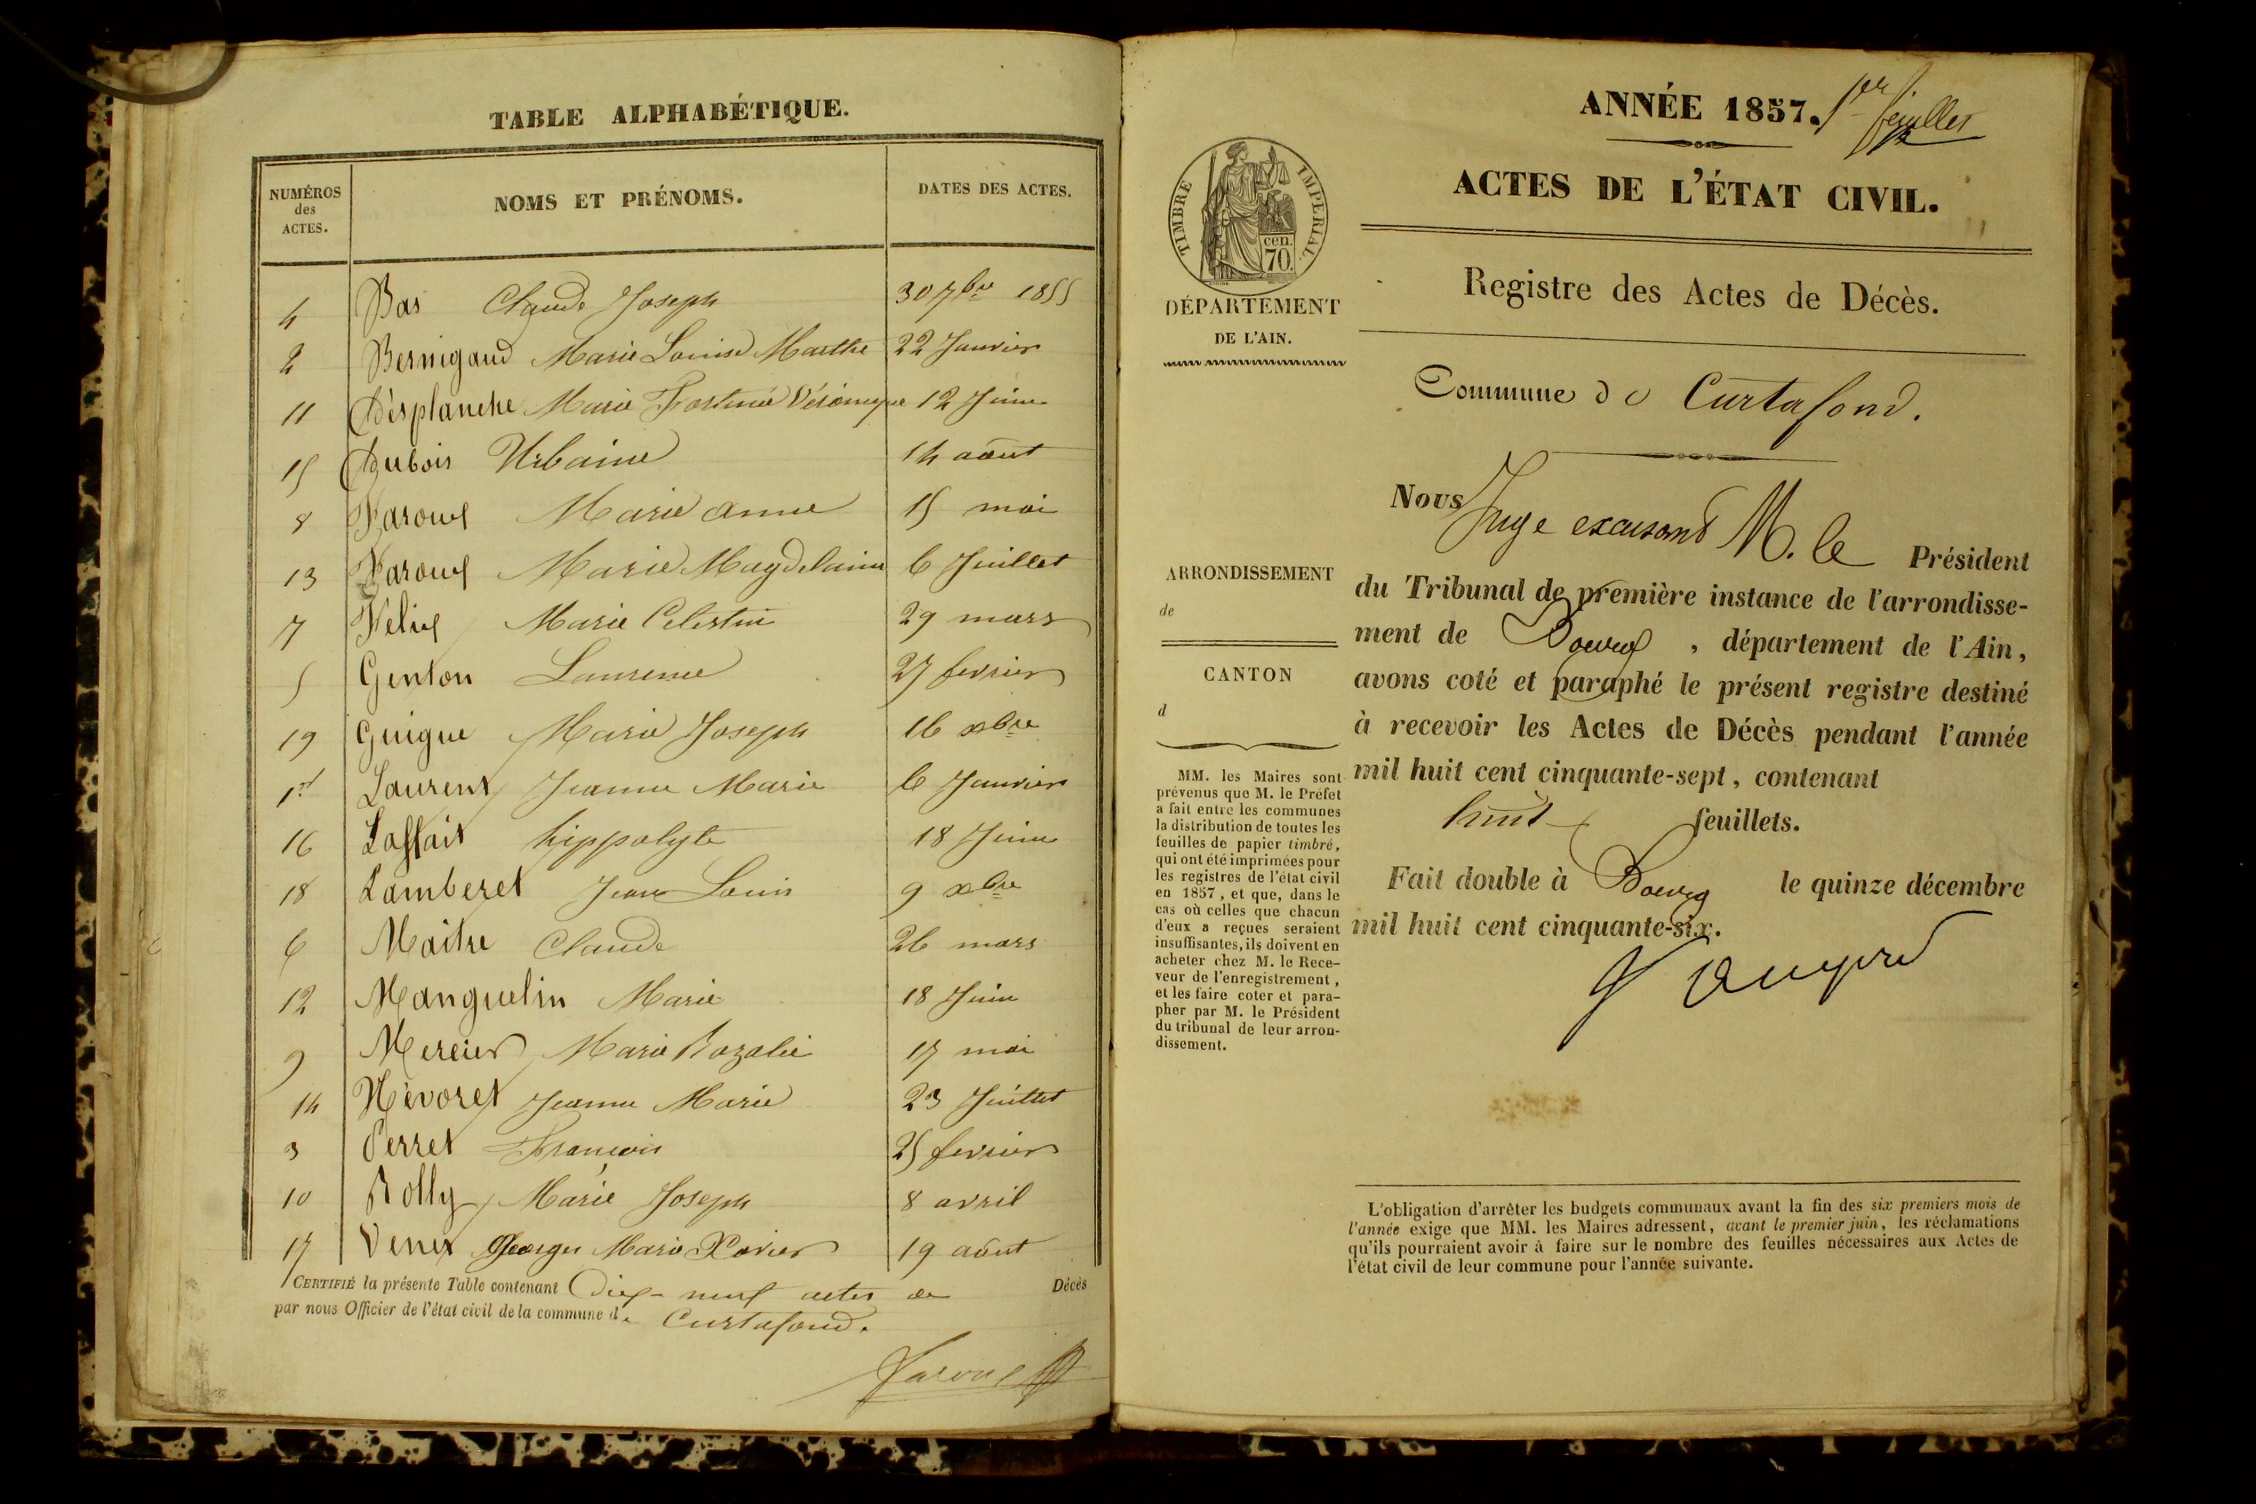 TABLE ALPHABÉTIQUE.
NUMÉROS
des
ACTES.
NOMS ET PRÉNOMS.
DATES DES ACTES.
4 Bas Claude Joseph 30 7bre 1855
2 Bernigaud Marie Louise Marthe 22 Janvier
11 Désplanche Marie Véronique 12 Juin
15 Dubois Urbaine 14 août
8 Faroux Marie anne 15 mai
13 Faroux Marie Magdelaine 6 Juillet
7 Felix Marie Celestin 29 mars
5 Genton Laurence 27 fevrier
19 Guigue Marie Joseph 16 xbre
1er Laurent Jeanne Marie 6 Janvier
16 Laffait hippolyte 18 Juin
18 Lamberet Jean Louis 9 xbre
6 Maitre Claude 26 mars
12 Manguelin Marie 18 Juin
9 Mercier Marie Rozalie 17 mai
14 Névoret Jeanne Marie 23 Juillet
3 Perret François 25 fevrier
10 Rolly Marie Joseph 8 avril
17 Venet Georges Marie Xavier 19 août
CERTIFIÉ la présente Table contenant Dix-neuf actes de Décès
par nous Officier de l'état civil de la commune de Curtafond.
Faroux
ANNÉE 1857. 1er feuillet
ACTES DE L'ÉTAT CIVIL.
TIMBRE IMPERIAL
cen.
70.
DÉPARTEMENT
DE L'AIN.
Registre des Actes de Décès.
Commune de Curtafond.
ARRONDISSEMENT
de
CANTON
d
MM. les Maires sont
prévenus que M. le Préfet
a fait entre les communes
la distribution de toutes les
feuilles de papier timbré,
qui ont été imprimées pour
les registres de l'état civil
en 1857, et que, dans le
cas où celles que chacun
d'eux a reçues seraient
insuffisantes, ils doivent en
acheter chez M. le Rece-
veur de l'enregistrement,
et les faire coter et para-
pher par M. le Président
du tribunal de leur arron-
dissement.
Nous Juge excusant M. le Président
du Tribunal de première instance de l'arrondisse-
ment de Bourg, département de l'Ain,
avons coté et paraphé le présent registre destiné
à recevoir les Actes de Décès pendant l'année
mil huit cent cinquante-sept, contenant
huit feuillets.
Fait double à Bourg le quinze décembre
mil huit cent cinquante-six.
L'obligation d'arrêter les budgets communaux avant la fin des six premiers mois de
l'année exige que MM. les Maires adressent, avant le premier juin, les réclamations
qu'ils pourraient avoir à faire sur le nombre des feuilles nécessaires aux Actes de
l'état civil de leur commune pour l'année suivante.